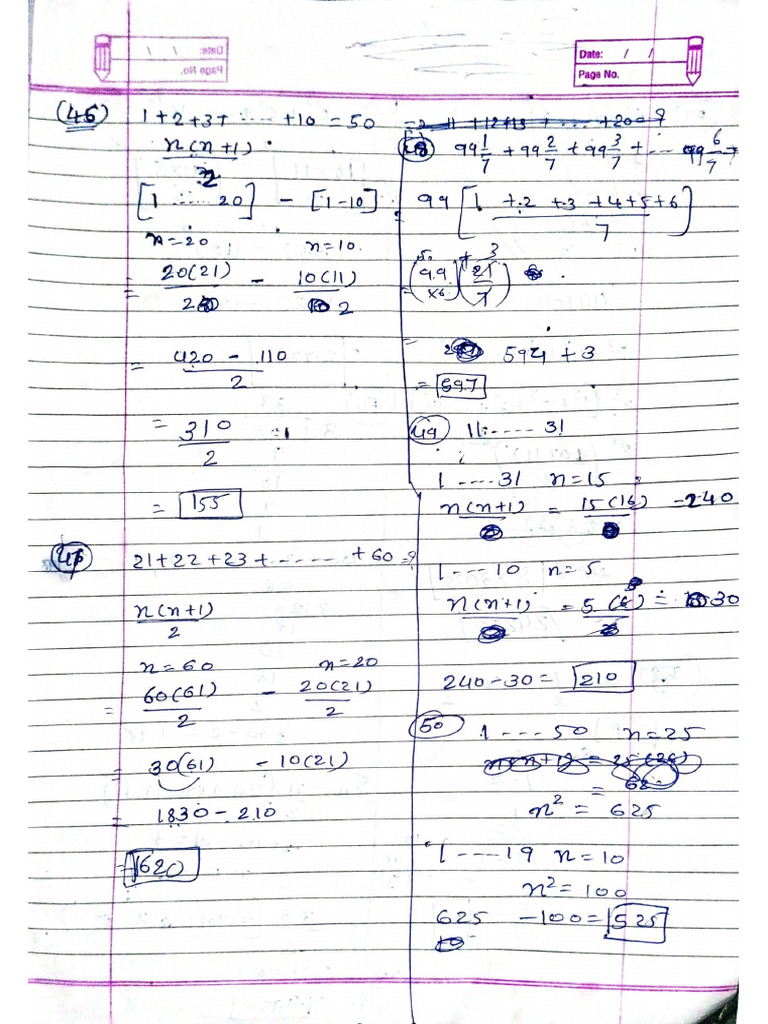 Date: / /
Page No.
Date: / /
Page No.
(46) 1+2+3+ ..... +10 = 50 = 2 11 +12+13 + .... +20 = ?
n(n+1)
2
[1 ..... 20] - [1-10]
n=20 , n=10
= 20(21)/2 - 10(11)/2
= 420 - 110
2
= 310
2
= 155
47 21+22+23+ ....... +60 = ?
n(n+1)
2
n=60 n=20
= 60(61)/2 - 20(21)/2
= 30(61) - 10(21)
= 1830 - 210
= 1620
48 99 1/7 + 99 2/7 + 99 3/7 + .... 99 6/7
= 99 [1 + 2 + 3 + 4 + 5 + 6 / 7]
= (99 x6) + (21/7) 3
= 594 + 3
= 597
49 11 ..... 31
1 .... 31 n=15
n(n+1) = 15(16) = 240
1 .... 10 n=5
n(n+1) = 5(6) = 30
240-30 = 210
50 1 .... 50 n=25
n(n+1) = 25(26)
= 62
n² = 625
1 .... 19 n=10
n² = 100
625 - 100 = 525